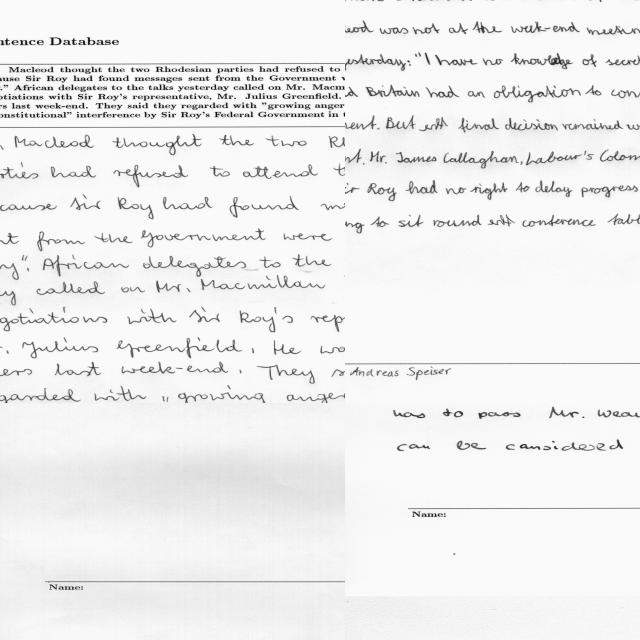 ntence Database
Macleod thought the two Rhodesian parties had refused to
ause Sir Roy had found messages sent from the Government w
." African delegates to the talks yesterday called on Mr. Macm
otiations with Sir Roy's representative, Mr. Julius Greenfield.
rs last week-end. They said they regarded with "growing anger
onstitutional" interference by Sir Roy's Federal Government in t
. Macleod thought the two Rh
rties had refused to attend t
cause Sir Roy had found m
nt from the Government were
ry". African delegates to the
ay called on Mr. Macmillan
gotiations with Sir Roy's rep
r. Julius Greenfield. He wa
ers last week-end. They s
garded with "growing anger
Name:
eod was not at the week-end meetin
esterday: "I have no knowledge of secre
d Britain had an obligation to con
ent. But final decision remained w
nt. Mr. James Callaghan, Labour's Colon
ir Roy had no right to delay progress
ng to sit round conference tabl
Andreas Speiser
has to pass Mr. Weav
can be considered
Name: